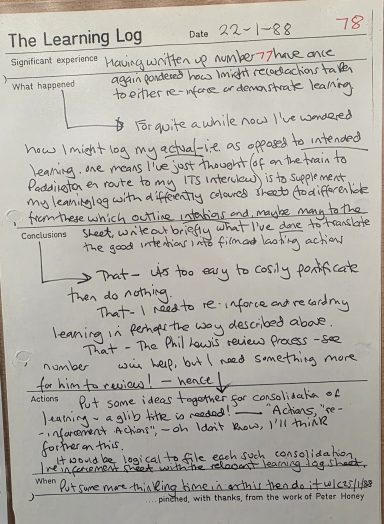 78
The Learning Log Date 22-1-88
Significant experience Having written up number 77 have once
again pondered how I might record actions taken
What happened to either re-inforce or demonstrate learning
For quite a while now I've wondered
how I might log my actual - i.e. as opposed to intended
learning. one means I've just thought (of on the train to
Paddington en route to my ITS interview) is to supplement
my learning log with differently coloured sheets (to differentiate
from these which outline intentions and, maybe many to the
Conclusions sheet, write out briefly what I've done to translate
the good intentions into firm and lasting actions
That - it's too easy to cosily pontificate
then do nothing.
That - I need to re-inforce and record my
learning in perhaps the way described above.
That - The Phil Lewis review process - see
number will help, but I need something more
for him to review! - hence
Actions Put some ideas together for consolidation of
learning - a glib title is needed! - "Actions, "re-
-inforcement Actions", - oh I don't know, I'll think
further on this.
It would be logical to file each such consolidation
/re inforcement sheet with the relevant learning log sheet.
When Put some more thinking time in on this then do it w/c 25/1/88
....pinched, with thanks, from the work of Peter Honey